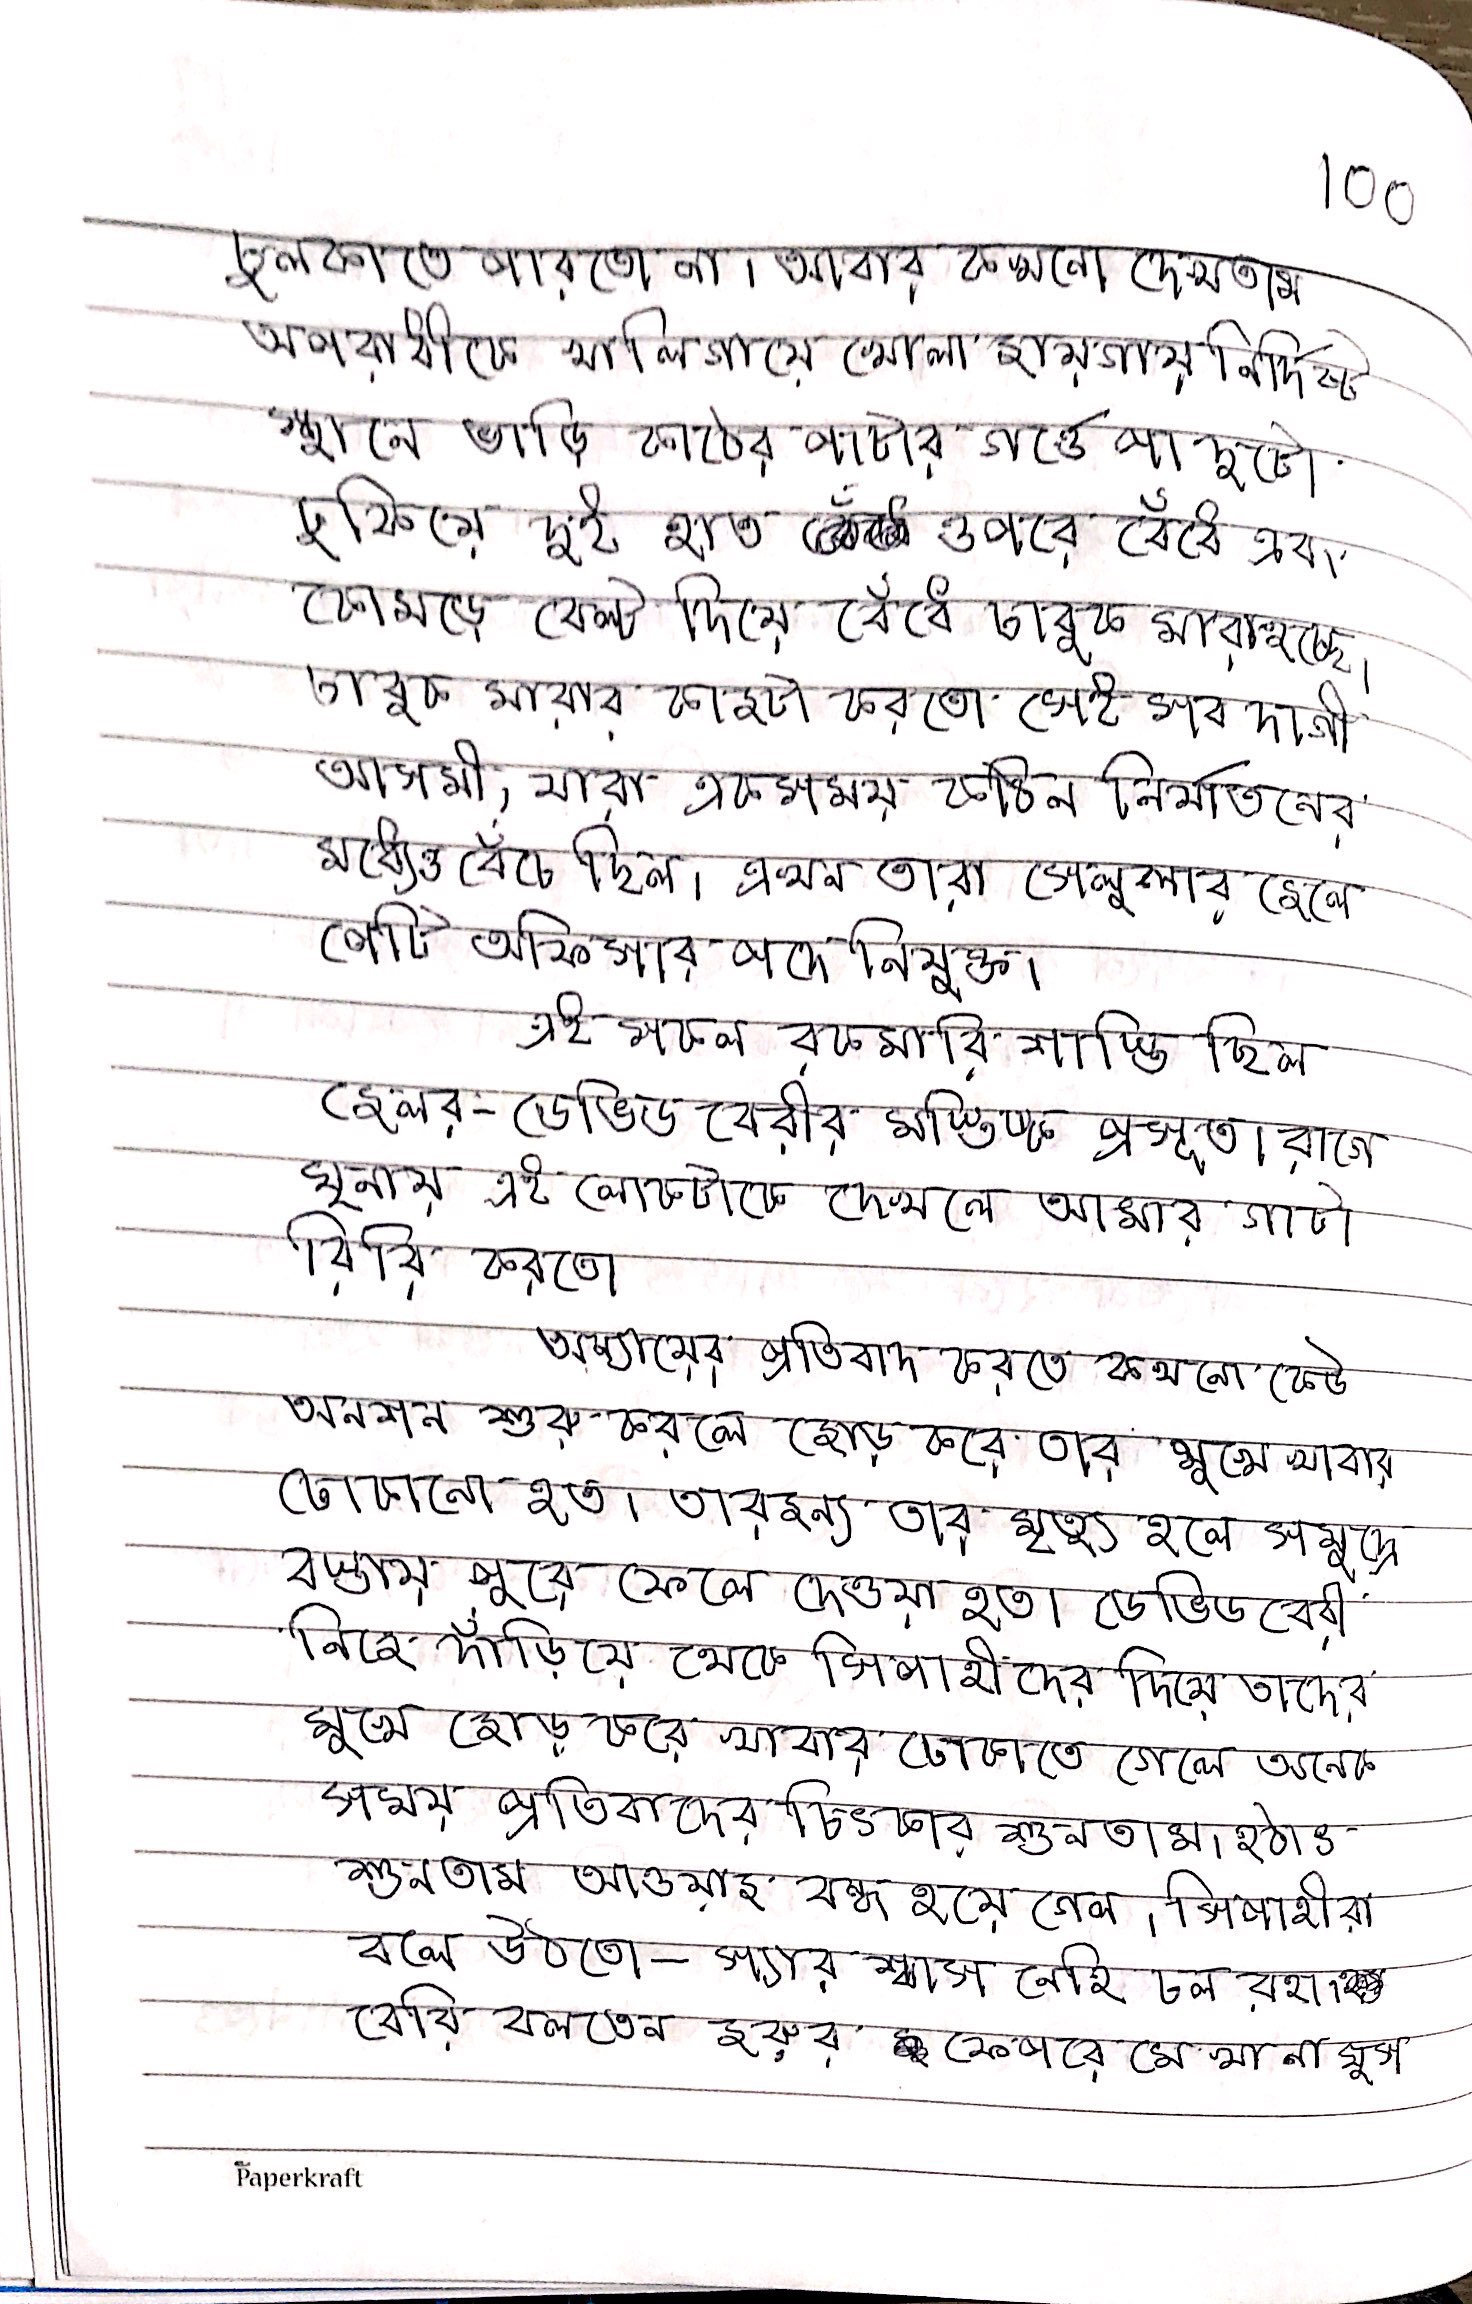 100
চুলকাতে পারতো না। আবার কখনো দেখতাম
অপরাধীকে খালিগায়ে খোলা জায়গায় নির্দিষ্ট
স্থানে ভাড়ি কাঠের পাটার গর্ত্তে পা দুটো
ঢুকিয়ে দুই হাত ওপরে বেঁধে এবং
কোমড়ে বেল্ট দিয়ে বেঁধে চাবুক মারাহচ্ছে।
চাবুক মারার কাজটা করতো সেই সব দাগী
আসামী, যারা একসময় কঠিন নির্যাতনের
মধ্যেও বেঁচে ছিল। এখন তারা সেলুলার জেলে
পেটি অফিসার পদে নিযুক্ত।
এই সকল রকমারি শাস্তি ছিল
জেলর - ডেভিড বেরীর মস্তিষ্ক প্রসূত। রাগে
ঘৃনায় এই লোকটাকে দেখলে আমার গাটা
রিরি করতো
অন্যায়ের প্রতিবাদ করতে কখনো কেউ
অনশন শুরু করলে জোড় করে তার মুখে খাবার
ঢোকানো হত। তারজন্য তার মৃত্যু হলে সমুদ্রে
বস্তায় পুরে ফেলে দেওয়া হত। ডেভিড বেরী
নিজে দাঁড়িয়ে থেকে সিপাহীদের দিয়ে তাদের
মুখে জোড় করে খাবার ঢোকাতে গেলে অনেক
সময় প্রতিবাদের চিৎকার শুনতাম। হঠাৎ
শুনতাম আওয়াজ বন্ধ হয়ে গেল। সিপাহীরা
বলে উঠতো — স্যার শ্বাস নেহি চল রহা।
বেরি বলতেন জরুর ফেপরে মে খানা ঘুস
Paperkraft